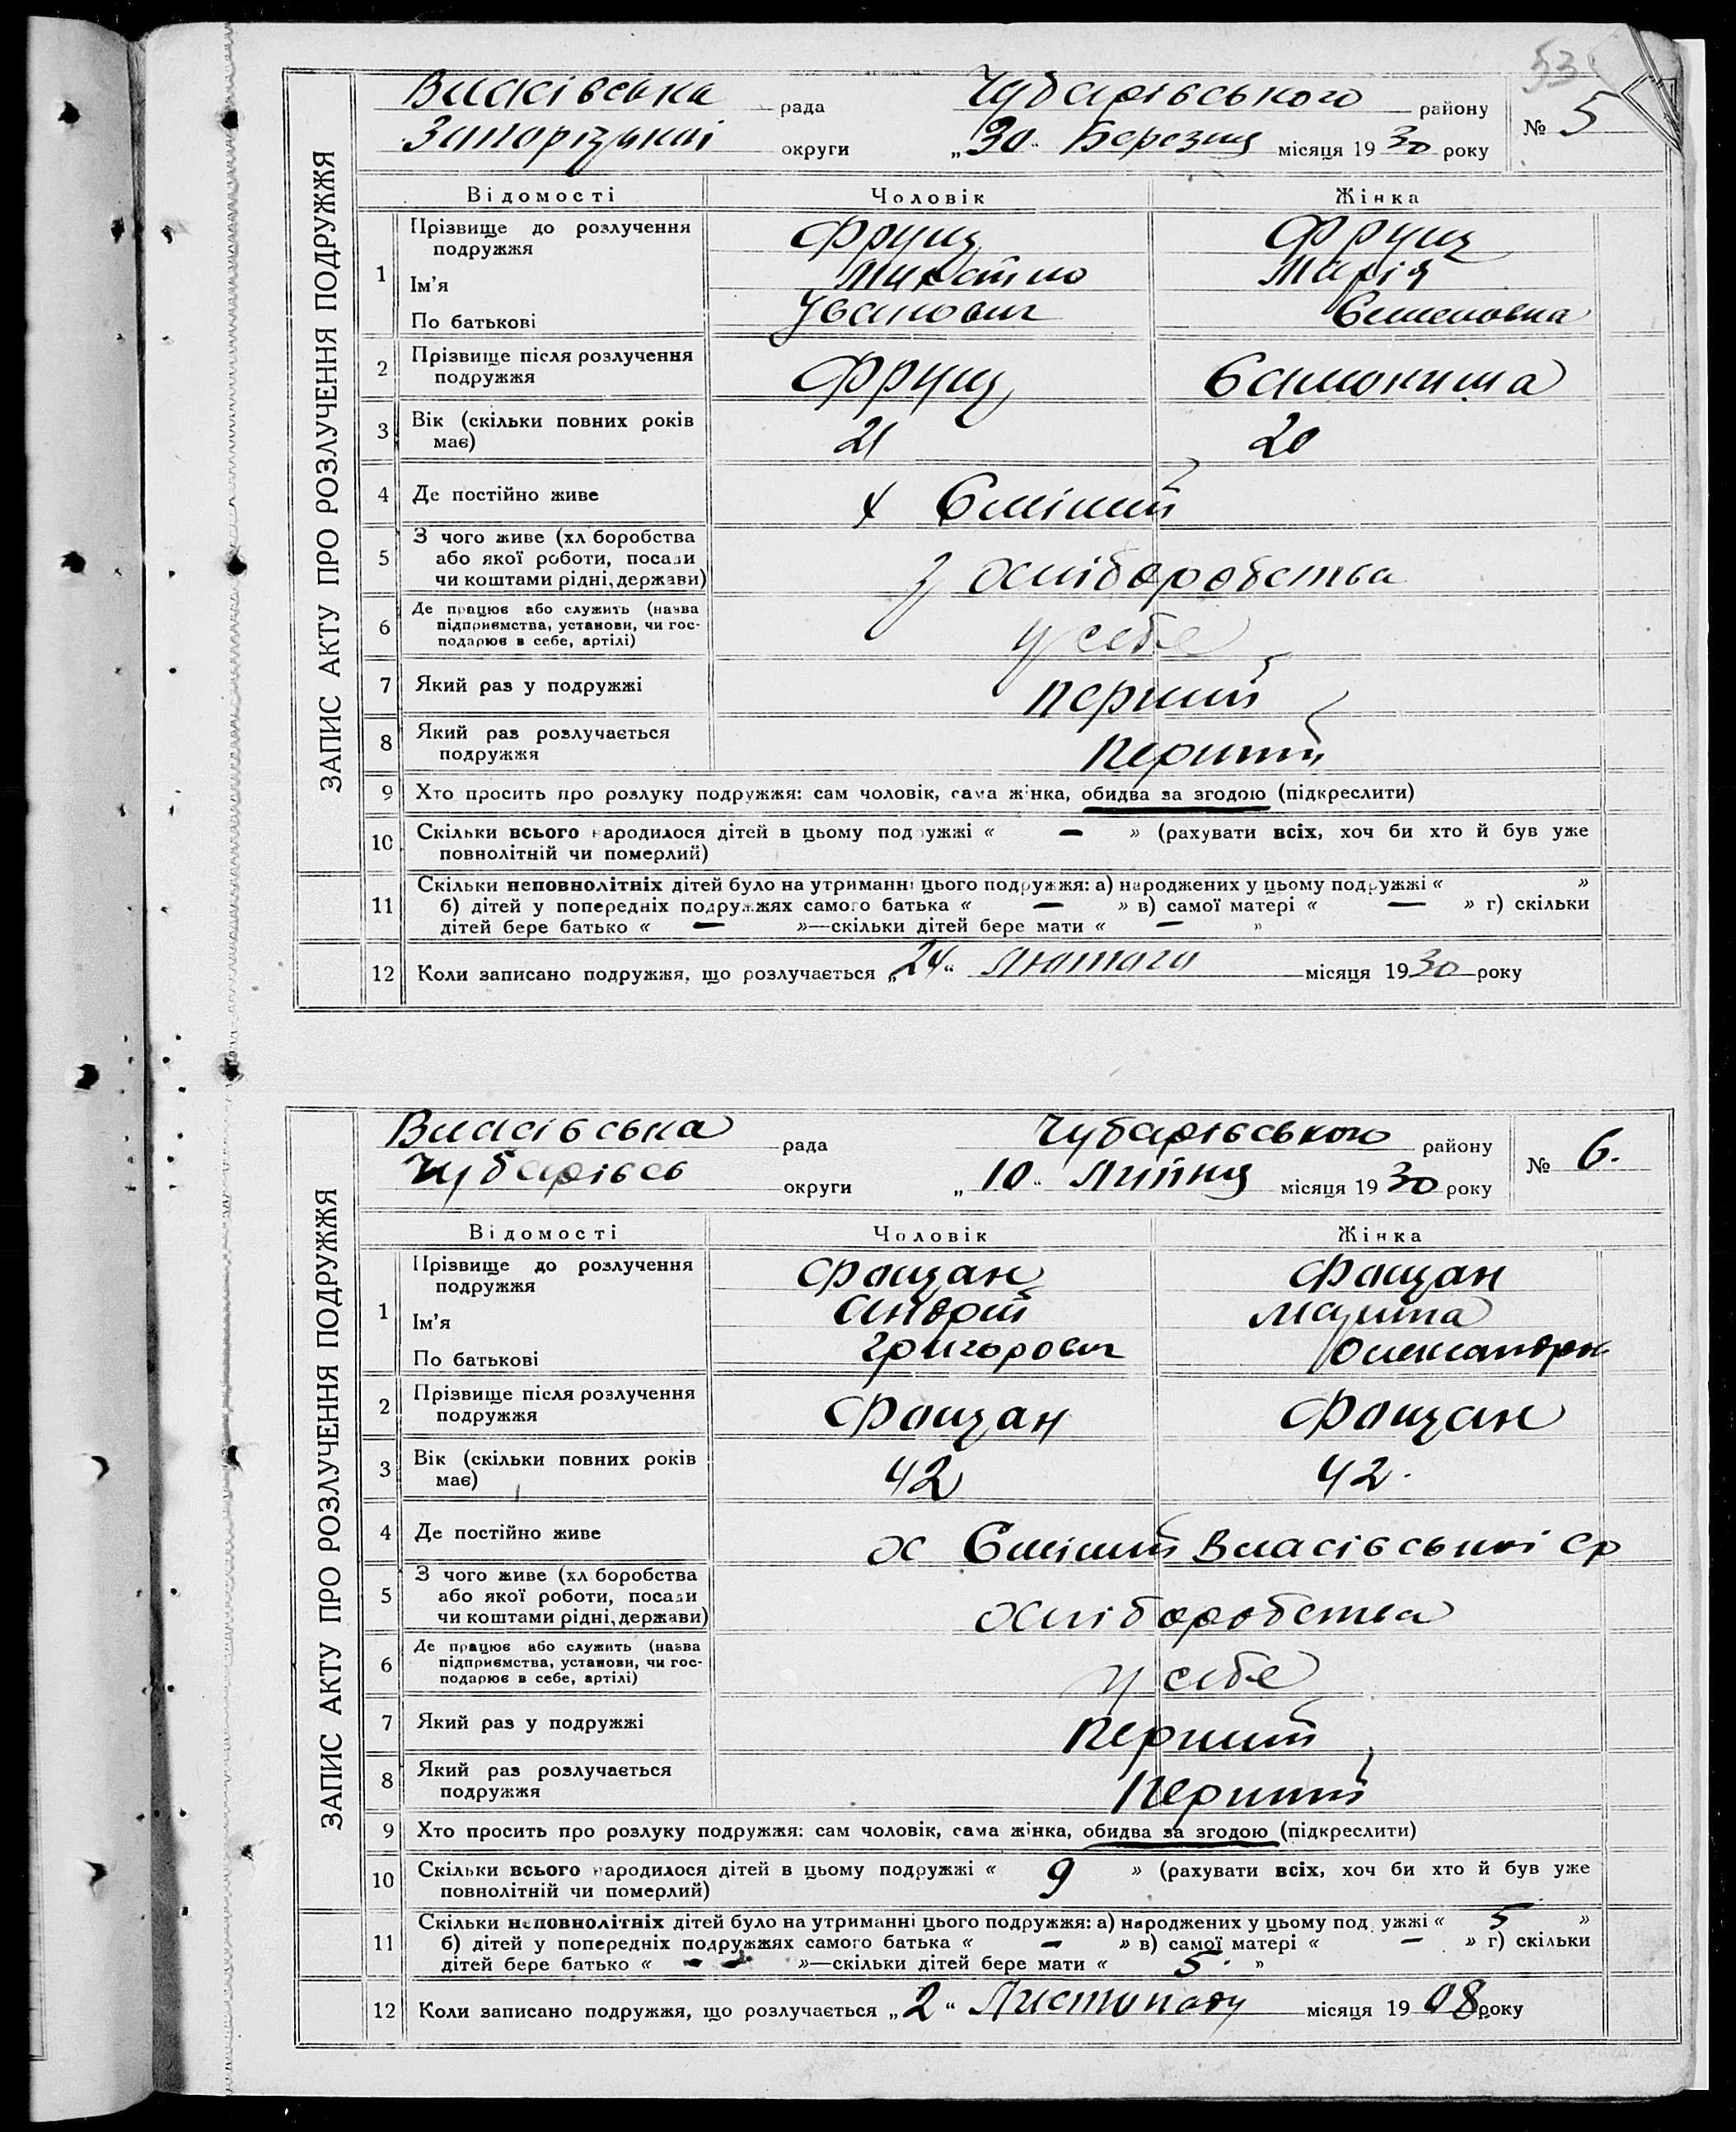 53
ЗАПИС АКТУ ПРО РОЗЛУЧЕННЯ ПОДРУЖЖЯ
Власівська рада Чубарівського району № 5
Запорізької округи „30“ Березня місяця 1930 року
Відомості Чоловік Жінка
1 Прізвище до розлучення подружжя Фрунз Фрунз
Ім'я Микитно Марія
По батькові Іванович Семеновна
2 Прізвище після розлучення подружжя Фрунз
3 Вік (скільки повних років має) 21 20
4 Де постійно живе х
5 З чого живе (хл боробства або якої роботи, посади чи коштами рідні, держави) з хліборобства
6 Де працює або служить (назва підприємства, установи, чи господарює в себе, артілі) у себе
7 Який раз у подружжі перший
8 Який раз розлучається подружжя перший
9 Хто просить про розлуку подружжя: сам чоловік, сама жінка, обидва за згодою (підкреслити)
10 Скільки всього народилося дітей в цьому подружжі « — » (рахувати всіх, хоч би хто й був уже
повнолітній чи померлий)
11 Скільки неповнолітніх дітей було на утриманні цього подружжя: а) народжених у цьому подружжі « »
б) дітей у попередніх подружжях самого батька « — » в) самої матері « — » г) скільки
дітей бере батько « — »—скільки дітей бере мати « — »
12 Коли записано подружжя, що розлучається „24“ Лютого місяця 1930 року
ЗАПИС АКТУ ПРО РОЗЛУЧЕННЯ ПОДРУЖЖЯ
Власівська рада Чубарівського району № 6.
Чубарівсь округи „10“ Липня місяця 1930 року
Відомості Чоловік Жінка
1 Прізвище до розлучення подружжя Фощан Фощан
Ім'я Андрій Марита
По батькові Григорович Олександрн
2 Прізвище після розлучення подружжя Фощан Фощан
3 Вік (скільки повних років має) 42 42.
4 Де постійно живе х Власівської ср
5 З чого живе (хл боробства або якої роботи, посади чи коштами рідні, держави) хліборобства
6 Де працює або служить (назва підприємства, установи, чи господарює в себе, артілі) у себе
7 Який раз у подружжі перший
8 Який раз розлучається подружжя перший
9 Хто просить про розлуку подружжя: сам чоловік, сама жінка, обидва за згодою (підкреслити)
10 Скільки всього народилося дітей в цьому подружжі « 9 » (рахувати всіх, хоч би хто й був уже
повнолітній чи померлий)
11 Скільки неповнолітніх дітей було на утриманні цього подружжя: а) народжених у цьому подружжі « 5 »
б) дітей у попередніх подружжях самого батька « — » в) самої матері « — » г) скільки
дітей бере батько « — »—скільки дітей бере мати « 5. »
12 Коли записано подружжя, що розлучається „2“ Листопаду місяця 1908 року